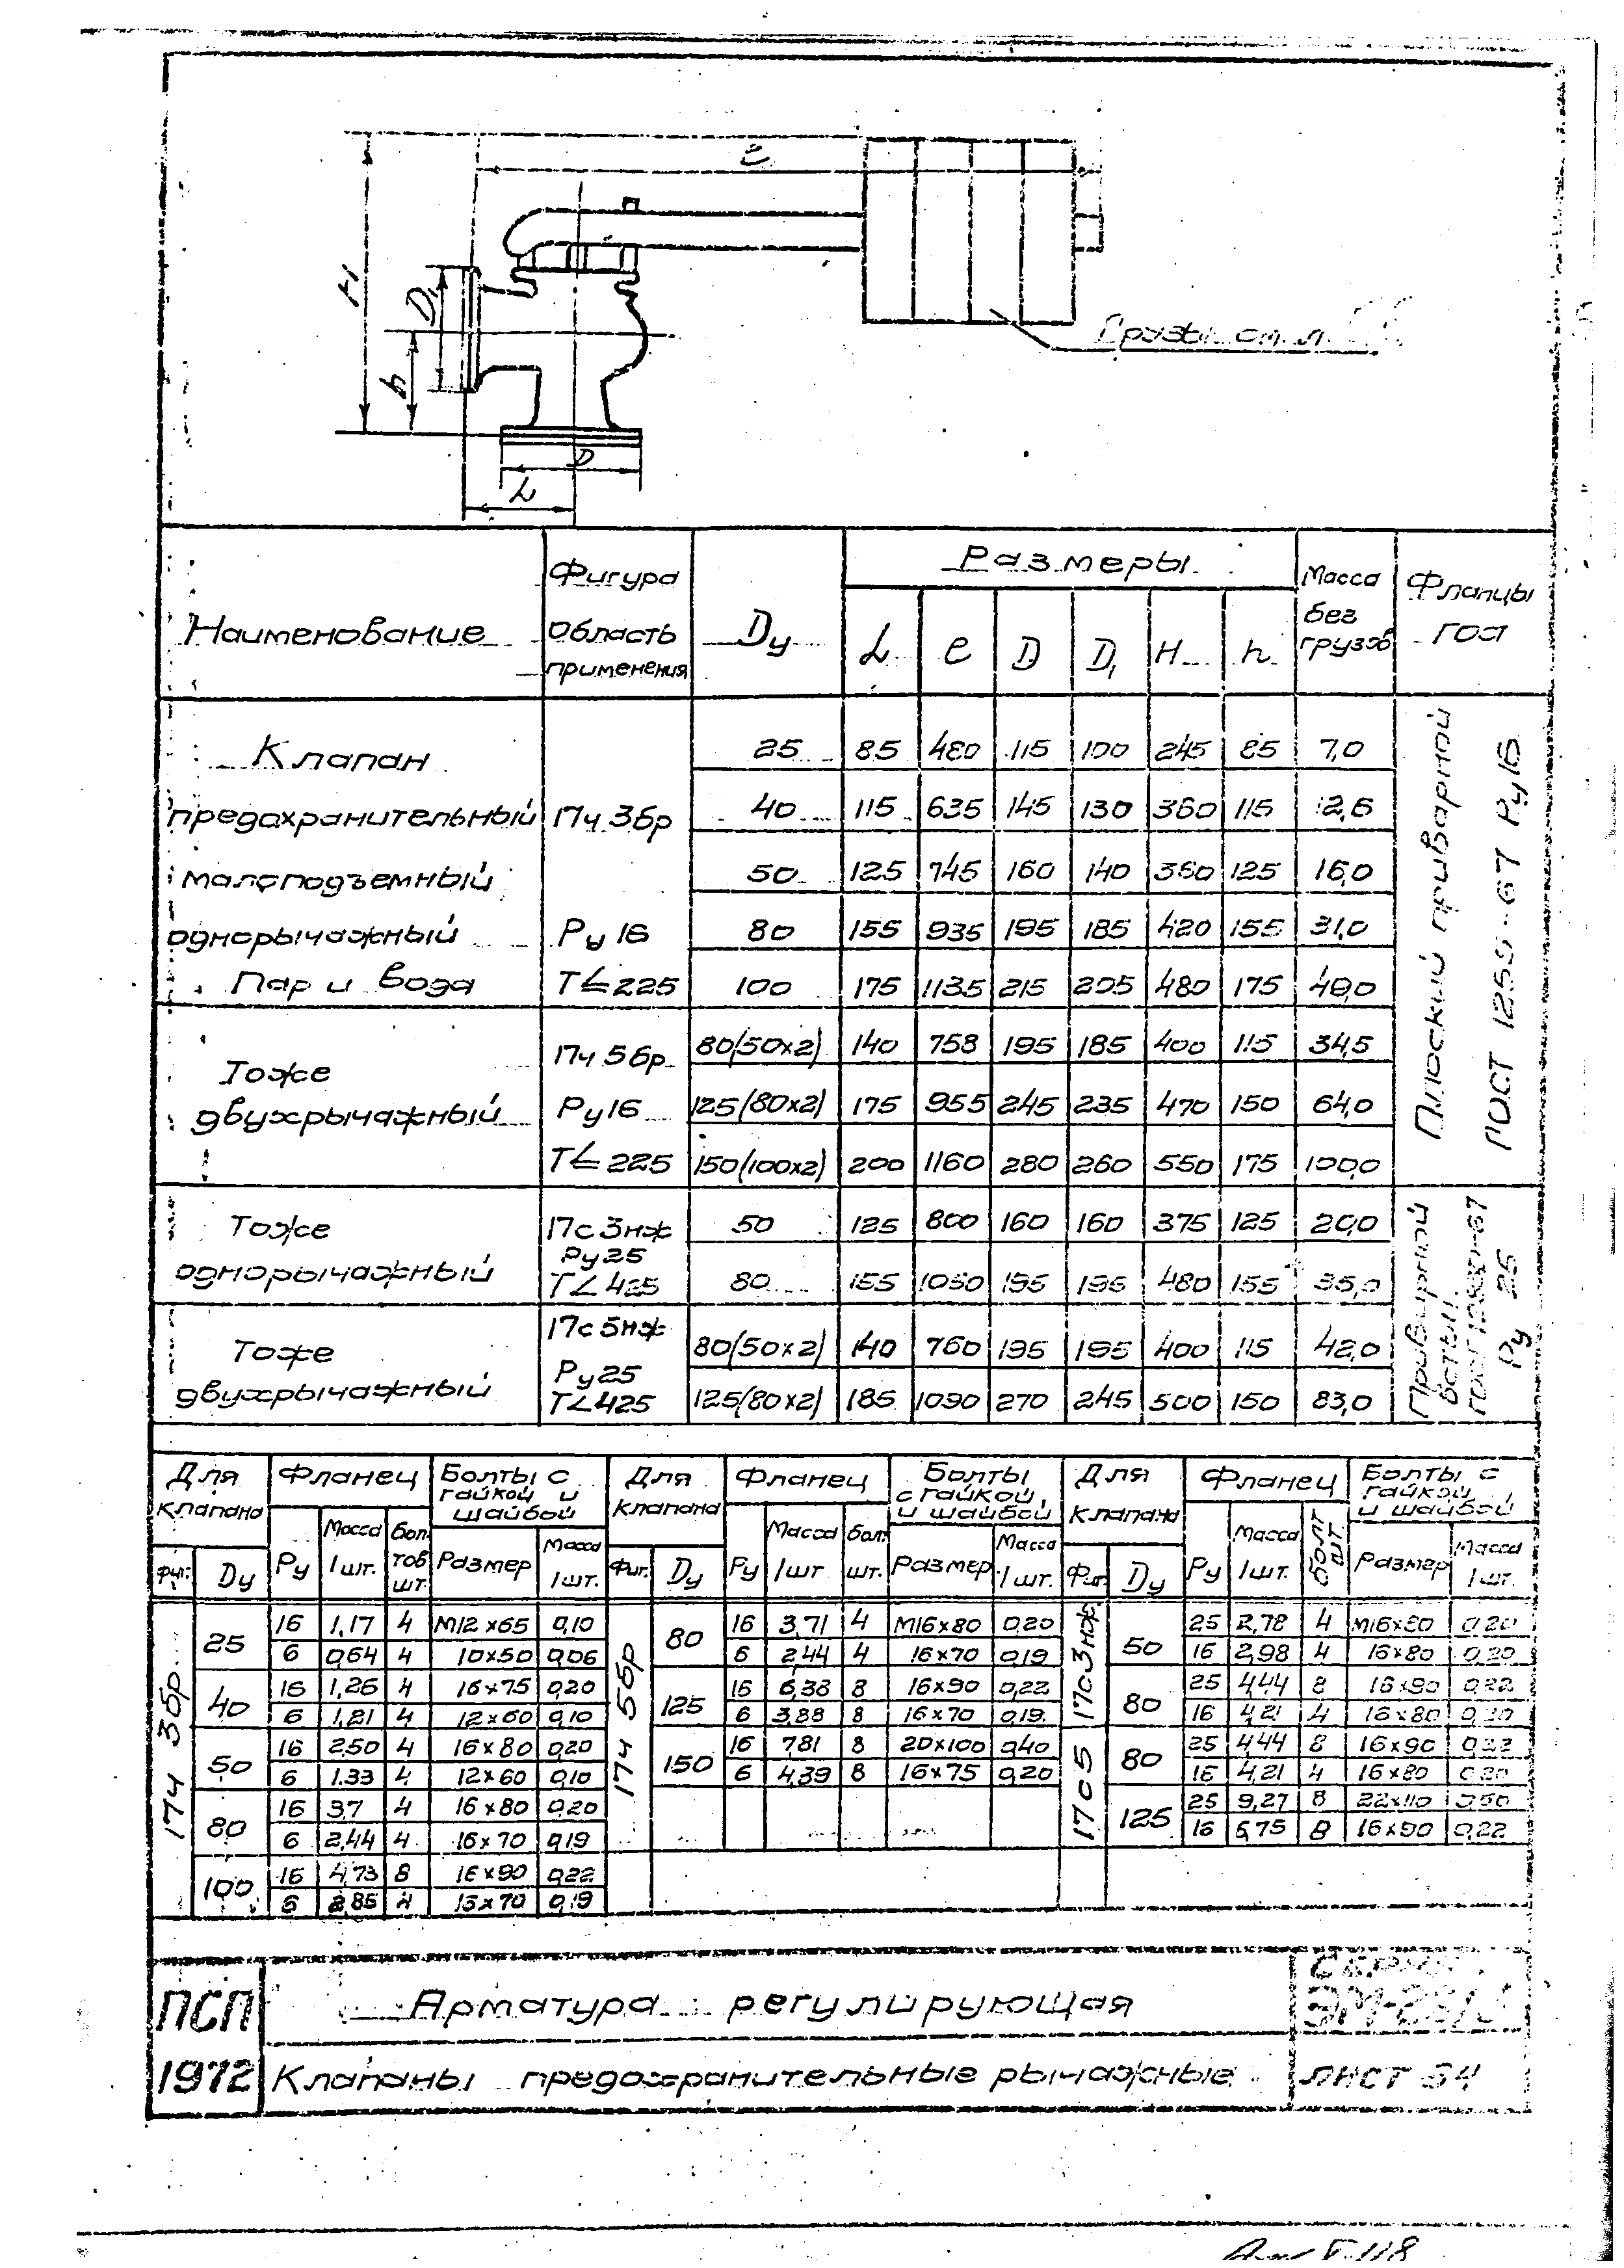 H
D₁
h
e
D
L
Грузы см. л.
Наименование
Фигура
Область
применения
Dу
Размеры
L e D D₁ H h
Масса
без
грузов
Фланцы
ГОСТ
Клапан
предохранительный
малоподъемный
однорычажный
Пар и вода
17ч 3бр
Ру 16
Т ≤ 225
25 85 480 115 100 245 85 7,0
40 115 635 145 130 360 115 12,6
50 125 745 160 140 360 125 16,0
80 155 935 195 185 420 155 31,0
100 175 1135 215 205 480 175 49,0
Тоже
двухрычажный
17ч 5бр
Ру16
Т ≤ 225
80(50х2) 140 758 195 185 400 115 34,5
125(80х2) 175 955 245 235 470 150 64,0
150(100х2) 200 1160 280 260 550 175 100,0
Плоский приварной
ГОСТ 1255-67 Ру16
Тоже
однорычажный
17с3нж
Ру25
Т<425
50 125 800 160 160 375 125 20,0
80 155 1050 195 195 480 155 35,0
Тоже
двухрычажный
17с5нж
Ру25
Т<425
80(50х2) 140 760 195 195 400 115 42,0
125(80х2) 185 1090 270 245 500 150 83,0
Ру 25
Для
клапана
Фиг. Dу
Фланец
Ру
Масса
1шт.
Бол.
тов
шт.
Болты с
гайкой и
шайбой
Размер
Масса
1шт.
17ч 3бр
25 16 1,17 4 М12х65 0,10
6 0,64 4 10х50 0,06
40 16 1,26 4 16х75 0,20
6 1,21 4 12х60 0,10
50 16 2,50 4 16х80 0,20
6 1.33 4 12х60 0,10
80 16 3,7 4 16х80 0,20
6 2,44 4 16х70 0,19
100 16 4,73 8 16х90 0,22
6 2,85 4 16х70 0,19
Для
клапана
Фиг. Dу
Фланец
Ру
Масса
1шт
Бол.
шт.
Болты
с гайкой
и шайбой
Размер
Масса
1шт.
17ч 5бр
80 16 3,71 4 М16х80 0,20
6 2,44 4 16х70 0,19
125 16 6,38 8 16х90 0,22
6 3,88 8 16х70 0,19
150 16 7,81 8 20х100 0,40
6 4,39 8 16х75 0,20
Для
клапана
Фиг. Dу
Фланец
Ру
Масса
1шт.
Болт
шт.
Болты с
гайкой
и шайбой
Размер
Масса
1шт.
17с3нж
50 25 2,78 4 М16х80 0,20
16 2,98 4 16х80 0,20
80 25 4,44 8 16х90 0,22
16 4,21 4 16х80 0,20
17с5
80 25 4,44 8 16х90 0,22
16 4,21 4 16х80 0,20
125 25 9,27 8 22х110 0,50
16 6,75 8 16х90 0,22
ПСП
1972
Арматура регулирующая
Клапаны предохранительные рычажные
Лист 54